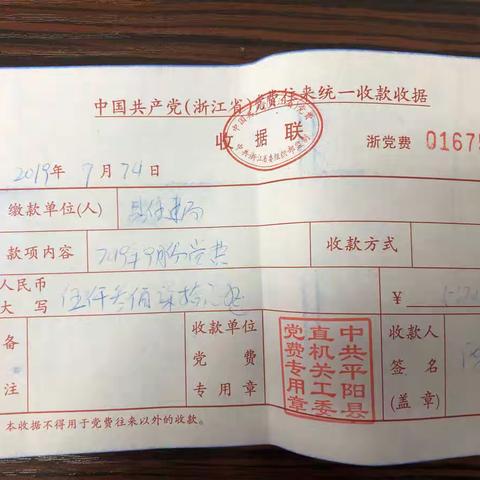 中国共产党(浙江省)党费往来统一收款收据
收据联
浙党费 01675
2019年9月24日
缴款单位(人) 县住建局
款项内容 2019年9月份党费 收款方式
人民币
大写 伍仟叁佰 ¥
备注
收款单位
党费
专用章
中共平阳县
直机关工委
党费专用章
收款人
签名
(盖章)
本收据不得用于党费往来以外的收款。